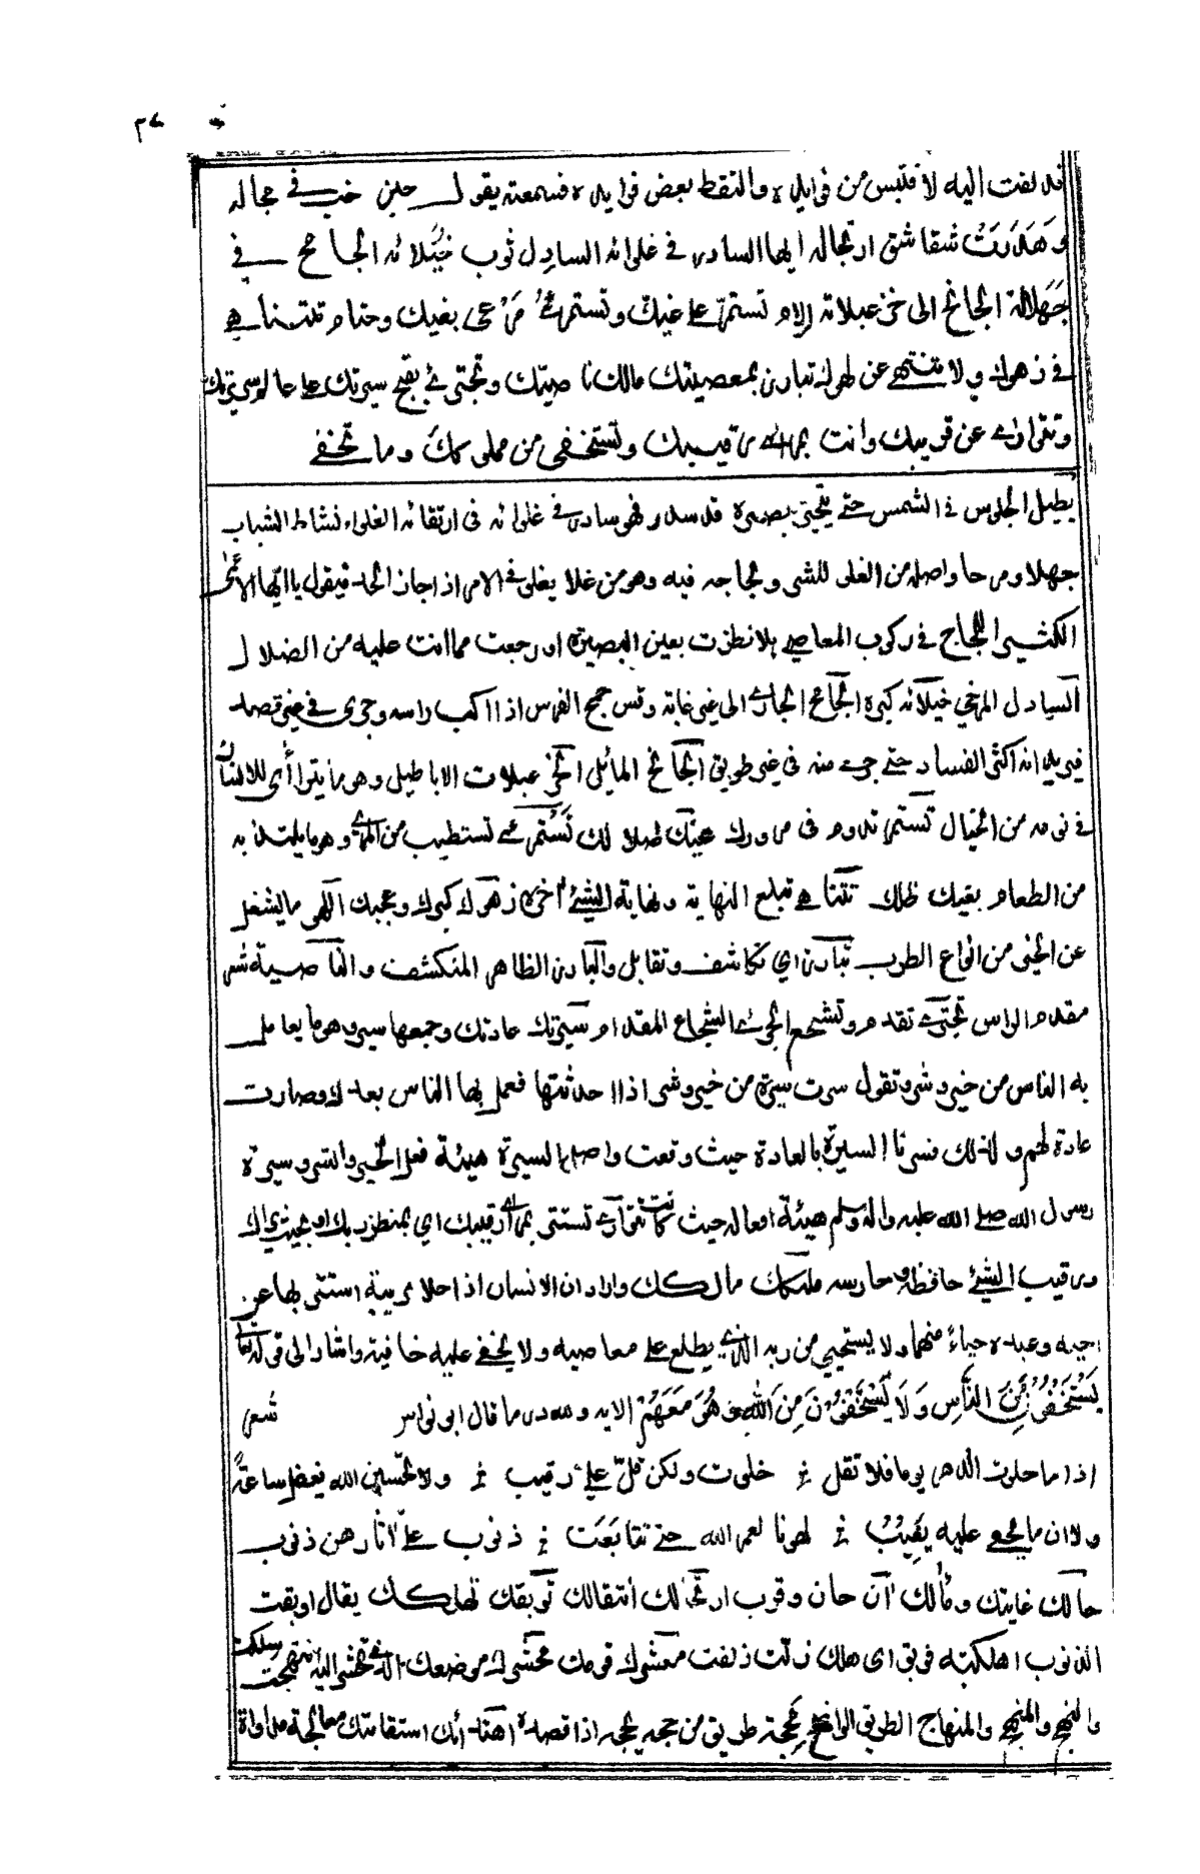 ٢٧
فدلفت اليه لاقتبس من فوايده والتقط بعض فرايده فسمعته يقول حين خب في مجاله
وهدرت شقاشق ارتجاله ايها السادر في غلوائه السادل ثوب خيلائه الجامح في
جهلاته الجانح الى خزعبلاته إلام تستمر على غيك وتستمرئ مرعى بغيك وحتام تتناهى
في زهوك ولا تنتهي عن لهوك تبارز بمعصيتك مالك ناصيتك وتجترئ بقبح سيرتك على عالم سريرتك
وتتوارى عن قريبك وانت بمرأى رقيبك وتستخفي من مملوكك وما تخفى
يطيل الجلوس في الشمس حتى يتحير بصره قد سدر فهو سادر في غلوائه في ارتقائه الغلواء نشاط الشباب
جهلا ومرحا واصله من الغلو للشي ولجاجه فيه وهو من غلا يغلو في الامر اذا جاز الحد فيقول يا ايها
الكثير اللجاج في ركوب المعاصي هلا نظرت بعين البصيرة او رجعت مما انت عليه من الضلال
السادل المرخي خيلائه كبره الجامح الجاري الى غير غاية وفرس جمح الفرس اذا اكب راسه وجرى في غير قصد
فيريد انه اكثر الفساد حتى جرى منه في غير طريق الجانح المائل الخزعبلات الاباطيل وهو ما يتراأى للانسان
في نومه من الخيال تستمر تدوم في مرورك غيك ضلالك تستمرئ تستطيب من المرئ وهو ما يلتذ به
من الطعام بغيك ظلمك تتناهى تبلغ النهاية ونهاية الشئ اخره زهوك كبرك وعجبك اللهو ما يشغل
عن الخير من انواع الطرب تبارز اي تكاشف وتقابل والبارز الظاهر المنكشف والناصية شعر
مقدم الراس تجترئ تقدم وتشجع الجرئ الشجاع المقدام سيرتك عادتك وجمعها سير وهو ما يعامل
به الناس من خير وشر وتقول سرت سيرة من خير وشر اذا احدثتها فعمل بها الناس بعدك وصارت
عادة لهم ولذلك فسرنا السيرة بالعادة حيث وقعت واصل السيرة هيئة فعل الخير والشر وسيرة
رسول الله صلى الله عليه واله وسلم هيئة افعاله حيث كانت تتوارى تستتر بمرأى رقيبك اي بمنظر ربك اي بحيث يراك
ورقيب الشئ حافظه وحارسه مليكك مالكك واراد ان الانسان اذا خلا بريبة استتر بها عن
وعبده حياءً منهما ولا يستحيي من ربه الذي يطلع على معاصيه ولا يخفى عليه خافية واشار الى قوله تعالى
يَسْتَخْفُونَ مِنَ النَّاسِ وَلَا يَسْتَخْفُونَ مِنَ اللهِ وَهُوَ مَعَهُمْ الايه ولله در ما قال ابو نواس شعر
اذا ما خلوت الدهر يوما فلا تقل ۞ خلوت ولكن قل علي رقيب ۞ ولا تحسبن الله يغفل ساعةً
ولا ان ما يخفى عليه يغيب ۞ لهونا لعمر الله حتى تتابعت ۞ ذنوب على اثارهن ذنوب
حالك غايتك ومألك آن حان وقرب ارتحالك انتقالك توبقك تهلكك يقال اوبقت
الذنوب اهلكته فوبق اى هلك زلت زلفت معشرك قومك محشرك موضعك الذي تحشر اليه انتهجت سلكت
والنهج والمنهج والمنهاج الطريق الواضح محجة طريق من حجه يحجه اذا قصده اهتدائك استقامتك معالجة مداواة